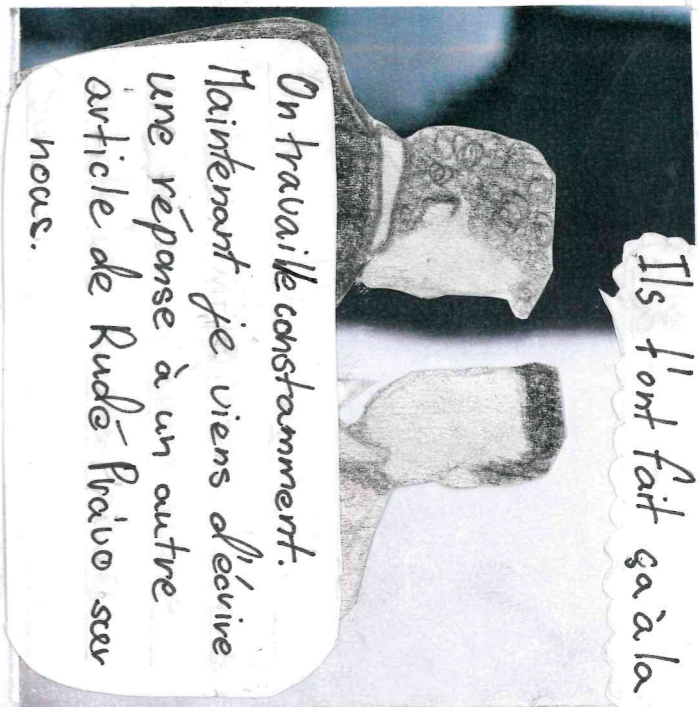 Ils t'ont fait ça à la
On travaille constamment.
Maintenant je viens d'écrire
une réponse à un autre
article de Rudé Právo sur
nous.